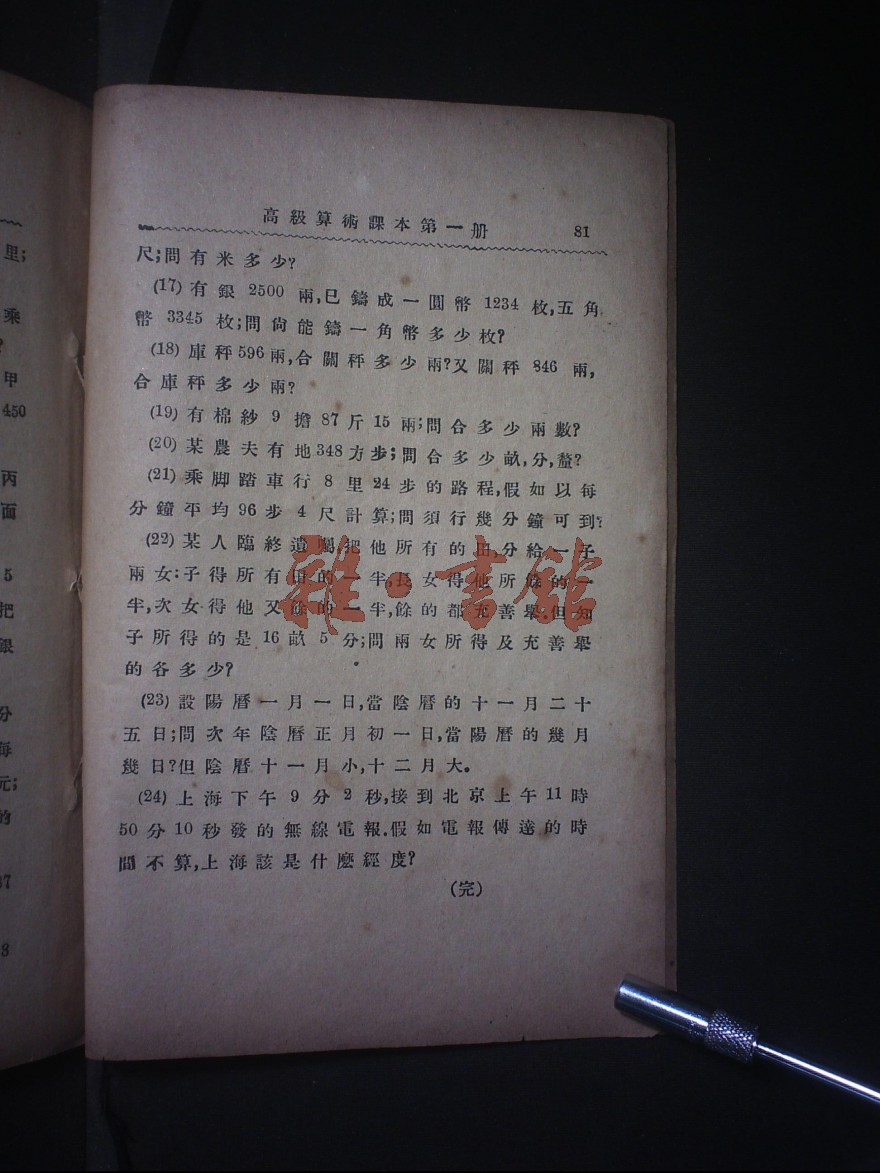 高級算術課本第一册 81
尺;問有米多少?
(17) 有銀 2500 兩,已鑄成一圓幣 1234 枚,五角
幣 3345 枚;問尙能鑄一角幣多少枚?
(18) 庫秤596兩,合關秤多少兩?又關秤 846 兩,
合庫秤多少兩?
(19) 有棉紗 9 擔 87 斤 15 兩;問合多少兩數?
(20) 某農夫有地348方步;問合多少畝,分,釐?
(21) 乘脚踏車行 8 里 24 步的路程,假如以每
分鐘平均 96 步 4 尺計算;問須行幾分鐘可到?
(22) 某人臨終遺囑,把他所有的田,分給一子
兩女:子得所有田的一半,長女得他所餘的一
半,次女得他又餘的一半,餘的都充善舉.但知
子所得的是 16 畝 5 分;問兩女所得及充善舉
的各多少?
(23) 設陽曆一月一日,當陰曆的十一月二十
五日;問次年陰曆正月初一日,當陽曆的幾月
幾日?但陰曆十一月小,十二月大。
(24) 上海下午 9 分 2 秒,接到北京上午 11 時
50 分 10 秒發的無線電報.假如電報傳達的時
間不算,上海該是什麽經度?
(完)
里;
乘
?
甲
450
丙
面
5
把
銀
分
每
元;
的
37
8
雜·書館